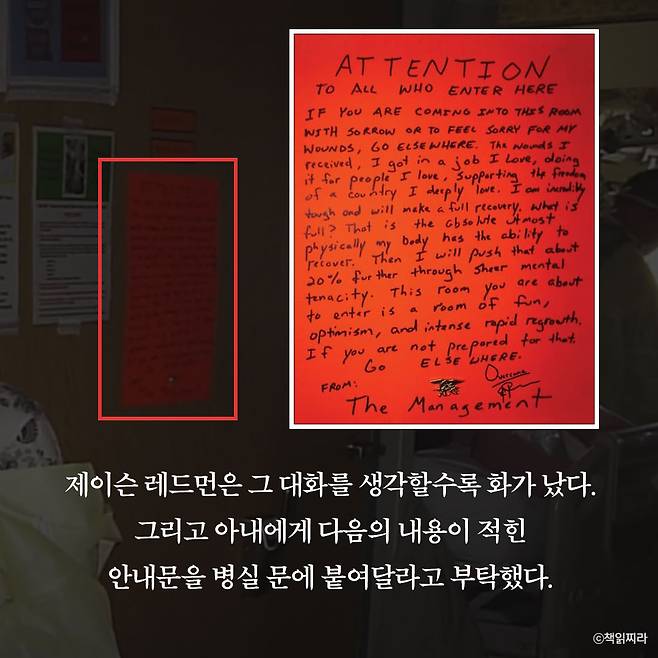 ATTENTION
TO ALL WHO ENTER HERE
IF YOU ARE COMING INTO THIS ROOM
WITH SORROW OR TO FEEL SORRY FOR MY
WOUNDS, GO ELSEWHERE. The wounds I
received, I got in a job I love, doing
it for people I love, supporting the freedom
of a country I deeply love. I am incredibly
tough and will make a full recovery. What is
full? That is the absolute utmost
physically my body has the ability to
recover. Then I will push that about
20% further through sheer mental
tenacity. This room you are about
to enter is a room of fun,
optimism, and intense rapid regrowth.
If you are not prepared for that,
GO ELSEWHERE.
FROM:
The Management
제이슨 레드먼은 그 대화를 생각할수록 화가 났다.
그리고 아내에게 다음의 내용이 적힌
안내문을 병실 문에 붙여달라고 부탁했다.
©책읽찌라